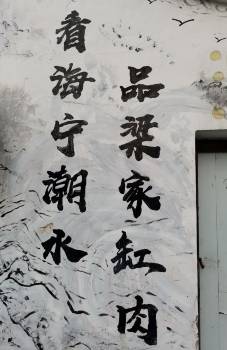 看海宁潮水
品梁家缸肉